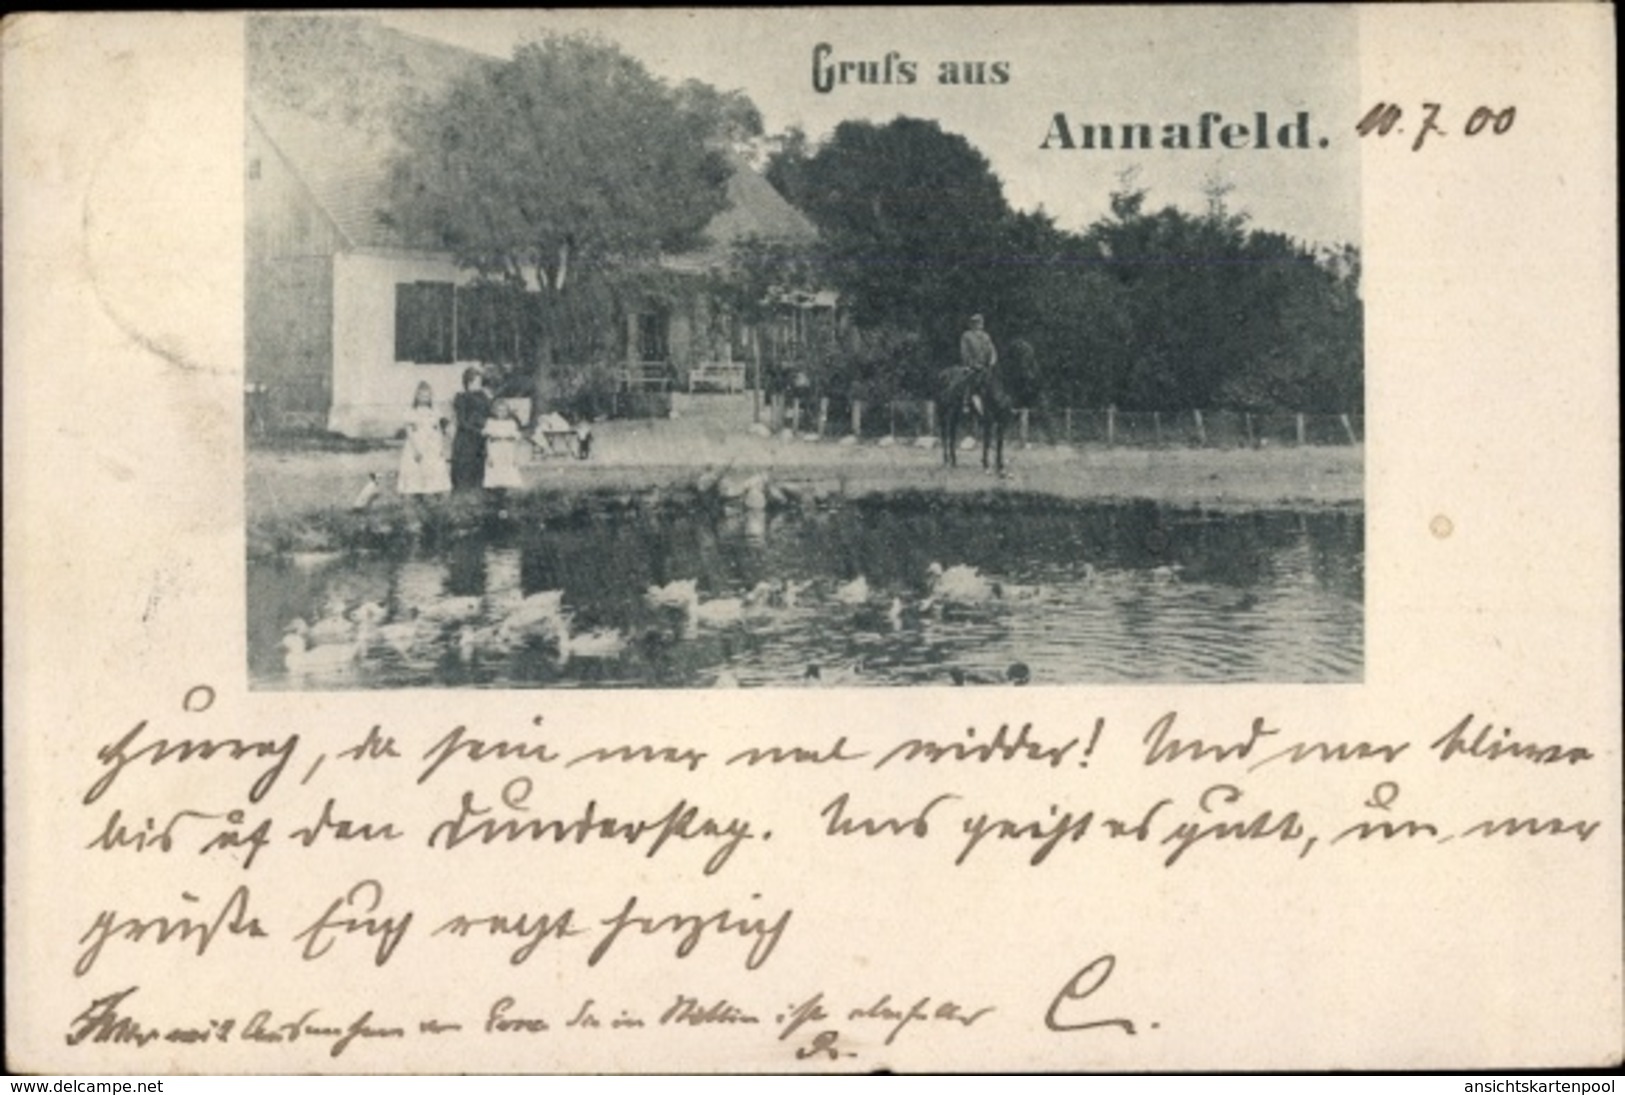 Gruſs aus
Annafeld.
10.7.00
Hurrah, da sein mer mal widder! Und mer bliwe
bis uf den Dunderstag. Uns geiht es gutt, un mer
grüße Euch recht herzlich
C.
in Stettin ist
www.delcampe.net
ansichtskartenpool